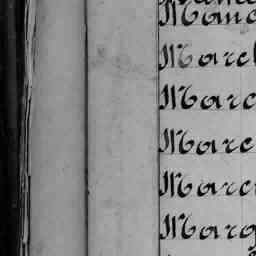 Manc
Marcl
Marc
Marc
Marc
Marg